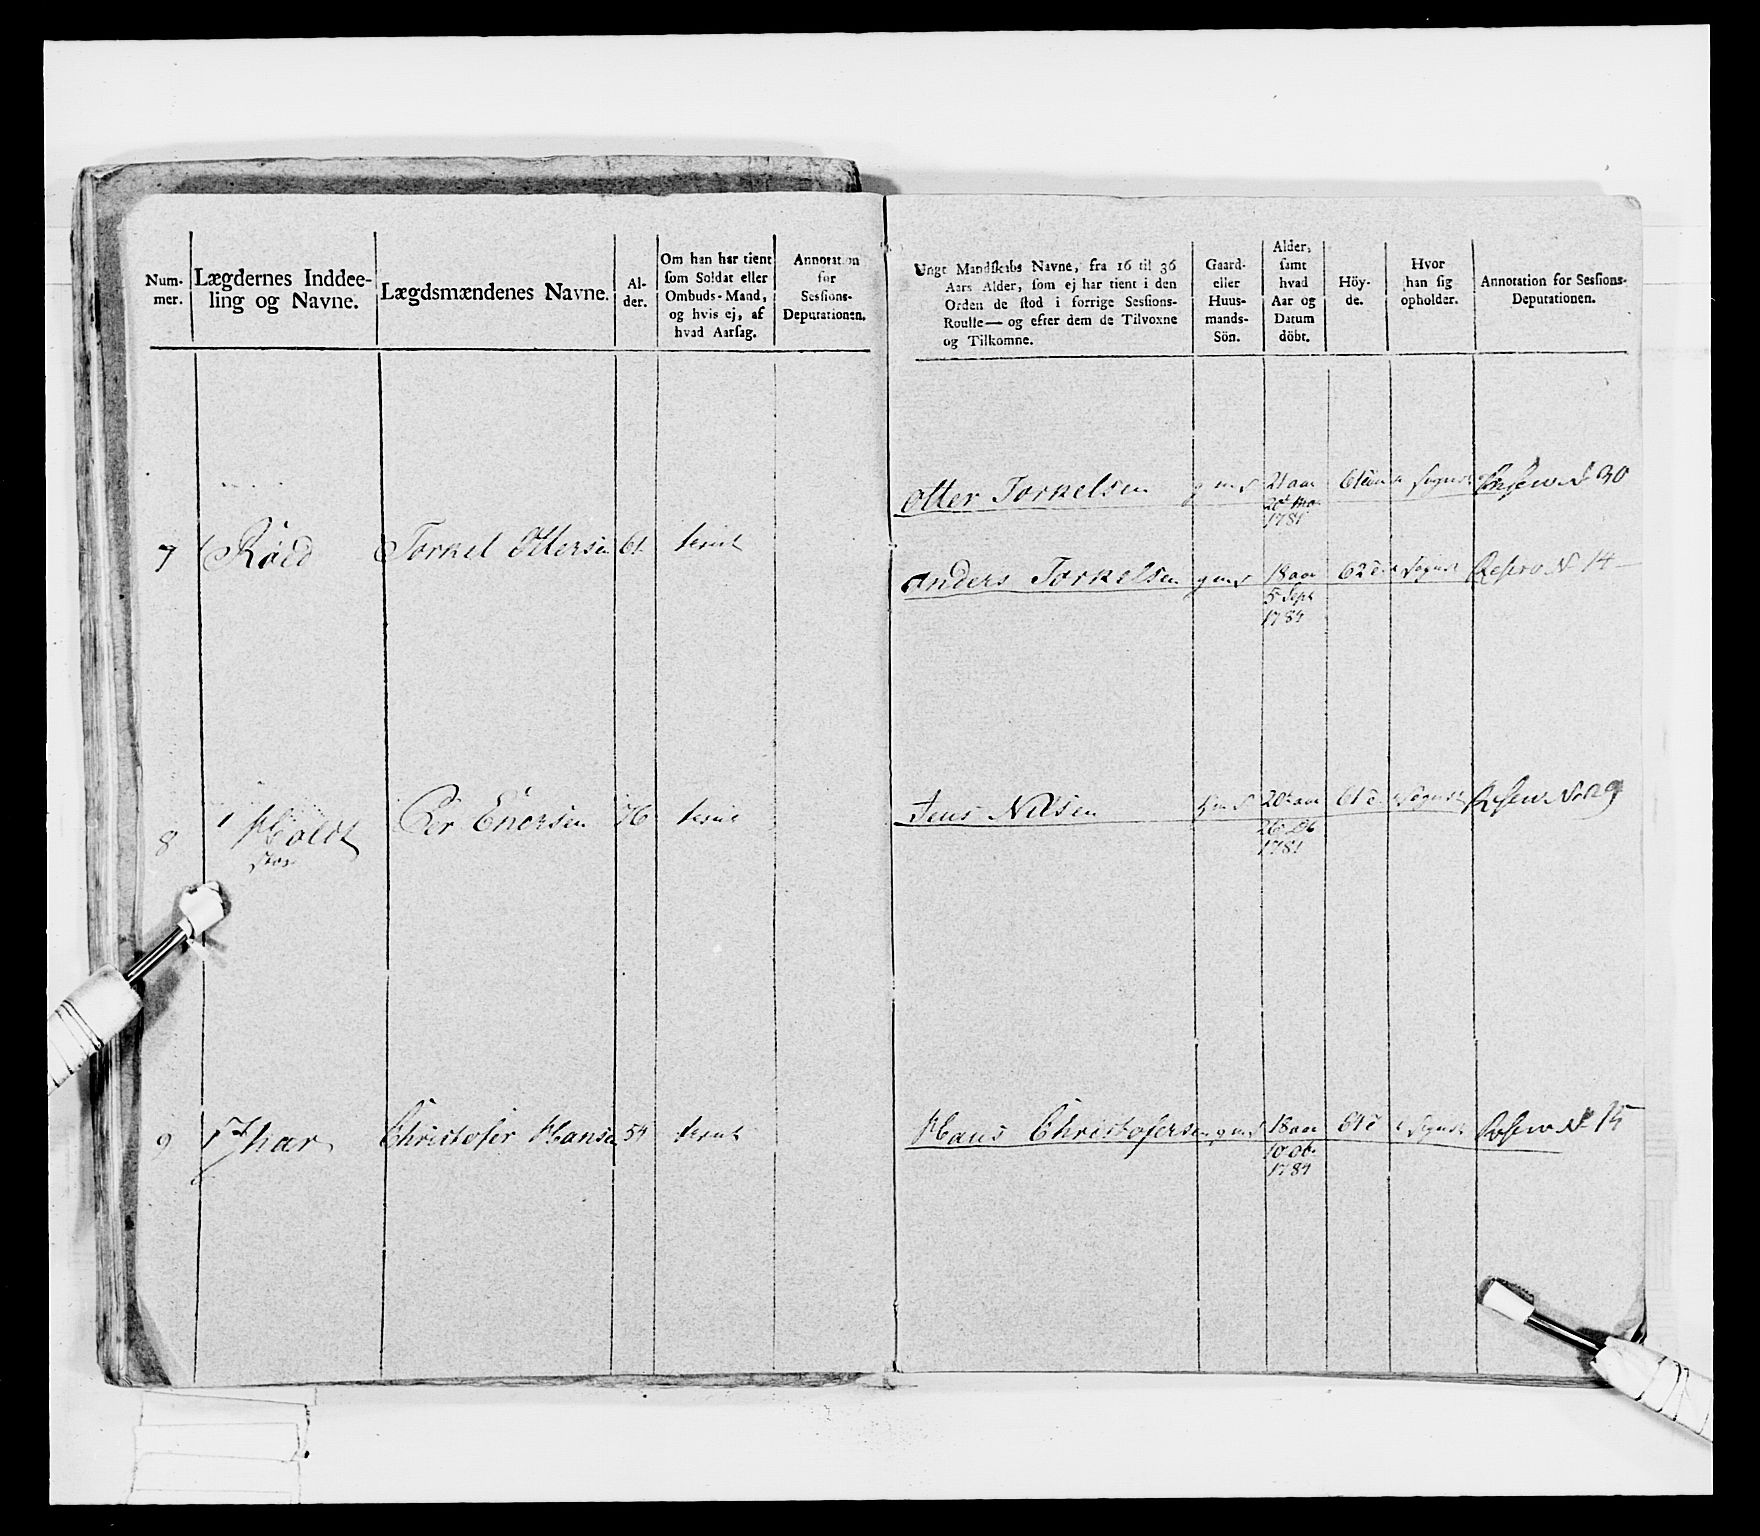 Num-
mer.
Lægdernes Inddee-
ling og Navne.
Lægdsmændenes Navne.
Al-
der.
Om han har tient
som Soldat eller
Ombuds-Mand,
og hvis ej, af
hvad Aarsag.
Annotation
for
Sessions-
Deputationen.
Ungt Mandskabs Navne, fra 16 til 36
Aars Alder, som ej har tient i den
Orden de stod i forrige Sessions-
Roulle — og efter dem de Tilvoxne
og Tilkomne.
Gaard-
eller
Huus-
mands-
Sön.
Alder,
samt
hvad
Aar og
Datum
döbt.
Höy-
de.
Hvor
han sig
opholder.
Annotation for Sessions-
Deputationen.
Otter Torkelsen gmS 21 aar
1781
30
7 Rød Torkel Ottersen 61 tient
Anders Torkelsen gmS 18 aar 62 Sognet Reserv N 14
5 Sept
1784
8 Holdt Per Enersen 76 tient
Jens Nilsen 20 aar 61 Sognet Reserv N 29
1781
9 Christofer Hansen 54 tient
Hans Christofersen gmS 18 aar 61 Sognet Reserv N 15
10 ob
1784